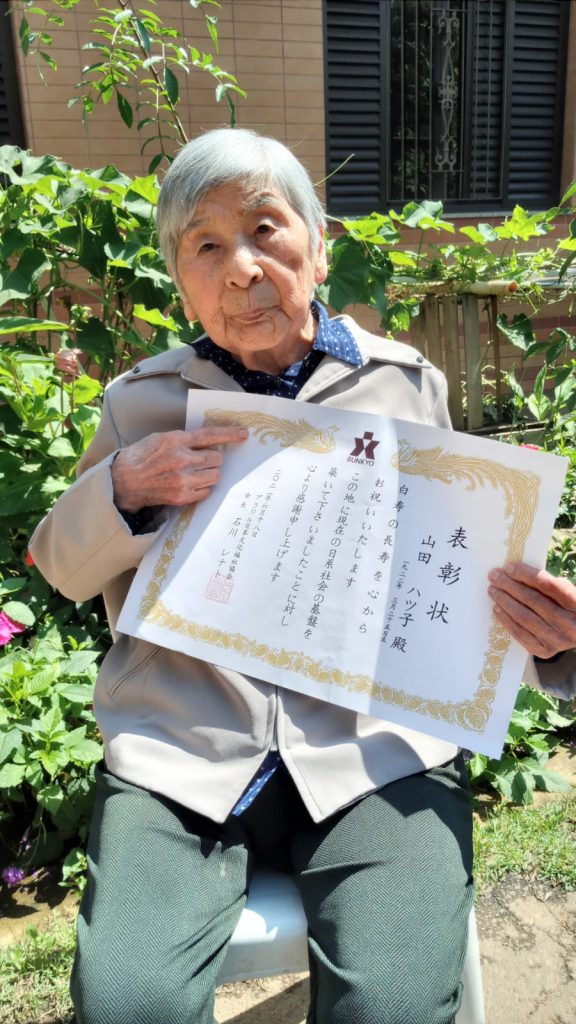 BUNKYO
表彰状
山田 ハツ子 殿
一九二二年 三月二十五日生
白寿の長寿を心から
お祝いいたします
この地に現在の日系社会の基盤を
築いて下さいましたことに対し
心より感謝申し上げます
二〇二一年六月十八日
ブラジル日本文化福祉協会
会長 石川 レナト